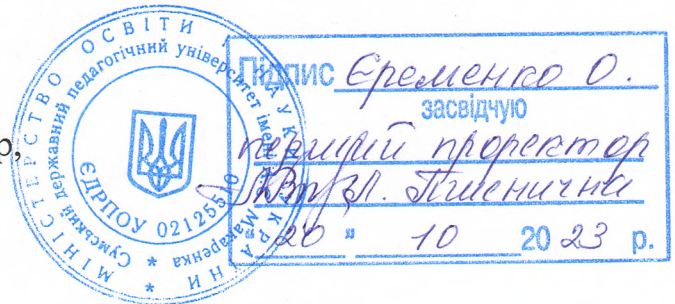 МІНІСТЕРСТВО ОСВІТИ І НАУКИ УКРАЇНИ
Сумський державний педагогічний університет імені А.С. Макаренка
ЄДРПОУ 02125510
р,
Підпис Єременко О.
засвідчую
перший проректор
Л. Пшенична
"20" 10 2023 р.